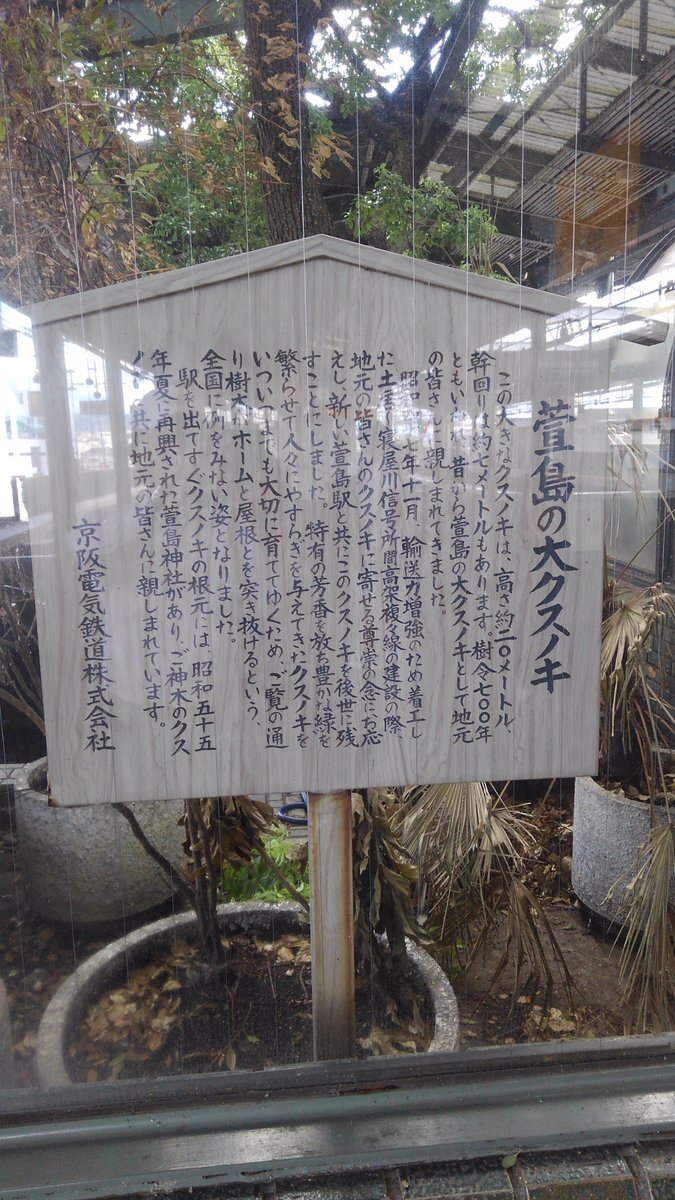 萱島の大クスノキ
この大きなクスノキは、高さ約二〇メートル、
幹回りは約七メートルもあります。樹令七〇〇年
ともいわれ、昔から萱島の大クスノキとして地元
の皆さんに親しまれてきました。
昭和 七年十一月、輸送力増強のため着工し
た土居〜寝屋川信号所間高架複々線の建設の際、
地元の皆さんのクスノキに寄せる尊崇の念にお応
えし、新しい萱島駅と共にこのクスノキを後世に残
すことにしました。特有の芳香を放ち豊かな緑を
繁らせて人々にやすらぎを与えてきたクスノキを
いついつまでも大切に育ててゆくため、ご覧の通
り樹木がホームと屋根とを突き抜けるという、
全国に例をみない姿となりました。
駅を出てすぐクスノキの根元には、昭和五十五
年夏に再興された萱島神社があり、ご神木のクス
ノキ共に地元の皆さんに親しまれています。
京阪電気鉄道株式会社